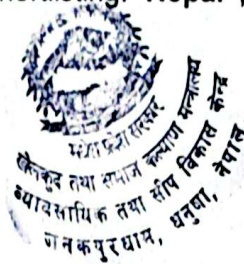 Nepal
मधेश प्रदेश सरकार
खेलकुद तथा समाज कल्याण मन्त्रालय
व्यावसायिक तथा सीप विकास केन्द्र
जनकपुरधाम, धनुषा, नेपाल